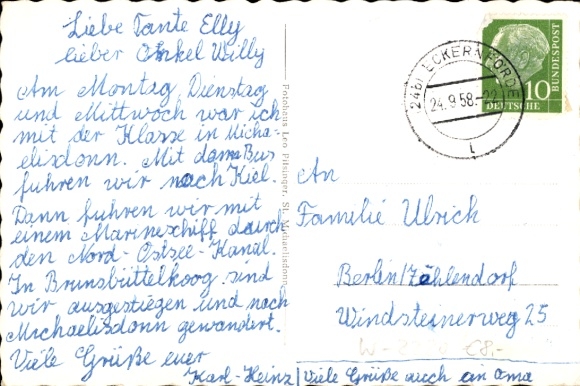 Liebe Tante Elly
lieber Onkel Willy
Am Montag, Dienstag
und Mittwoch war ich
mit der Klasse in Micha-
elisdonn. Mit dem Bus
fuhren wir nach Kiel.
Dann fuhren wir mit
einem Marineschiff durch
den Nord-Ostsee-Kanal.
In Brunsbüttelkoog sind
wir ausgestiegen und nach
Michaelisdonn gewandert.
Viele Grüße euer
Karl-Heinz / Viele Grüße auch an Oma
Fotohaus Leo Pilsinger, St. Michaelisdonn
24b ECKERNFÖRDE
24.9.58.-22
L
10
DEUTSCHE
BUNDESPOST
An
Familie Ulrich
Berlin/Zehlendorf
Windsteinerweg 25
€8,-